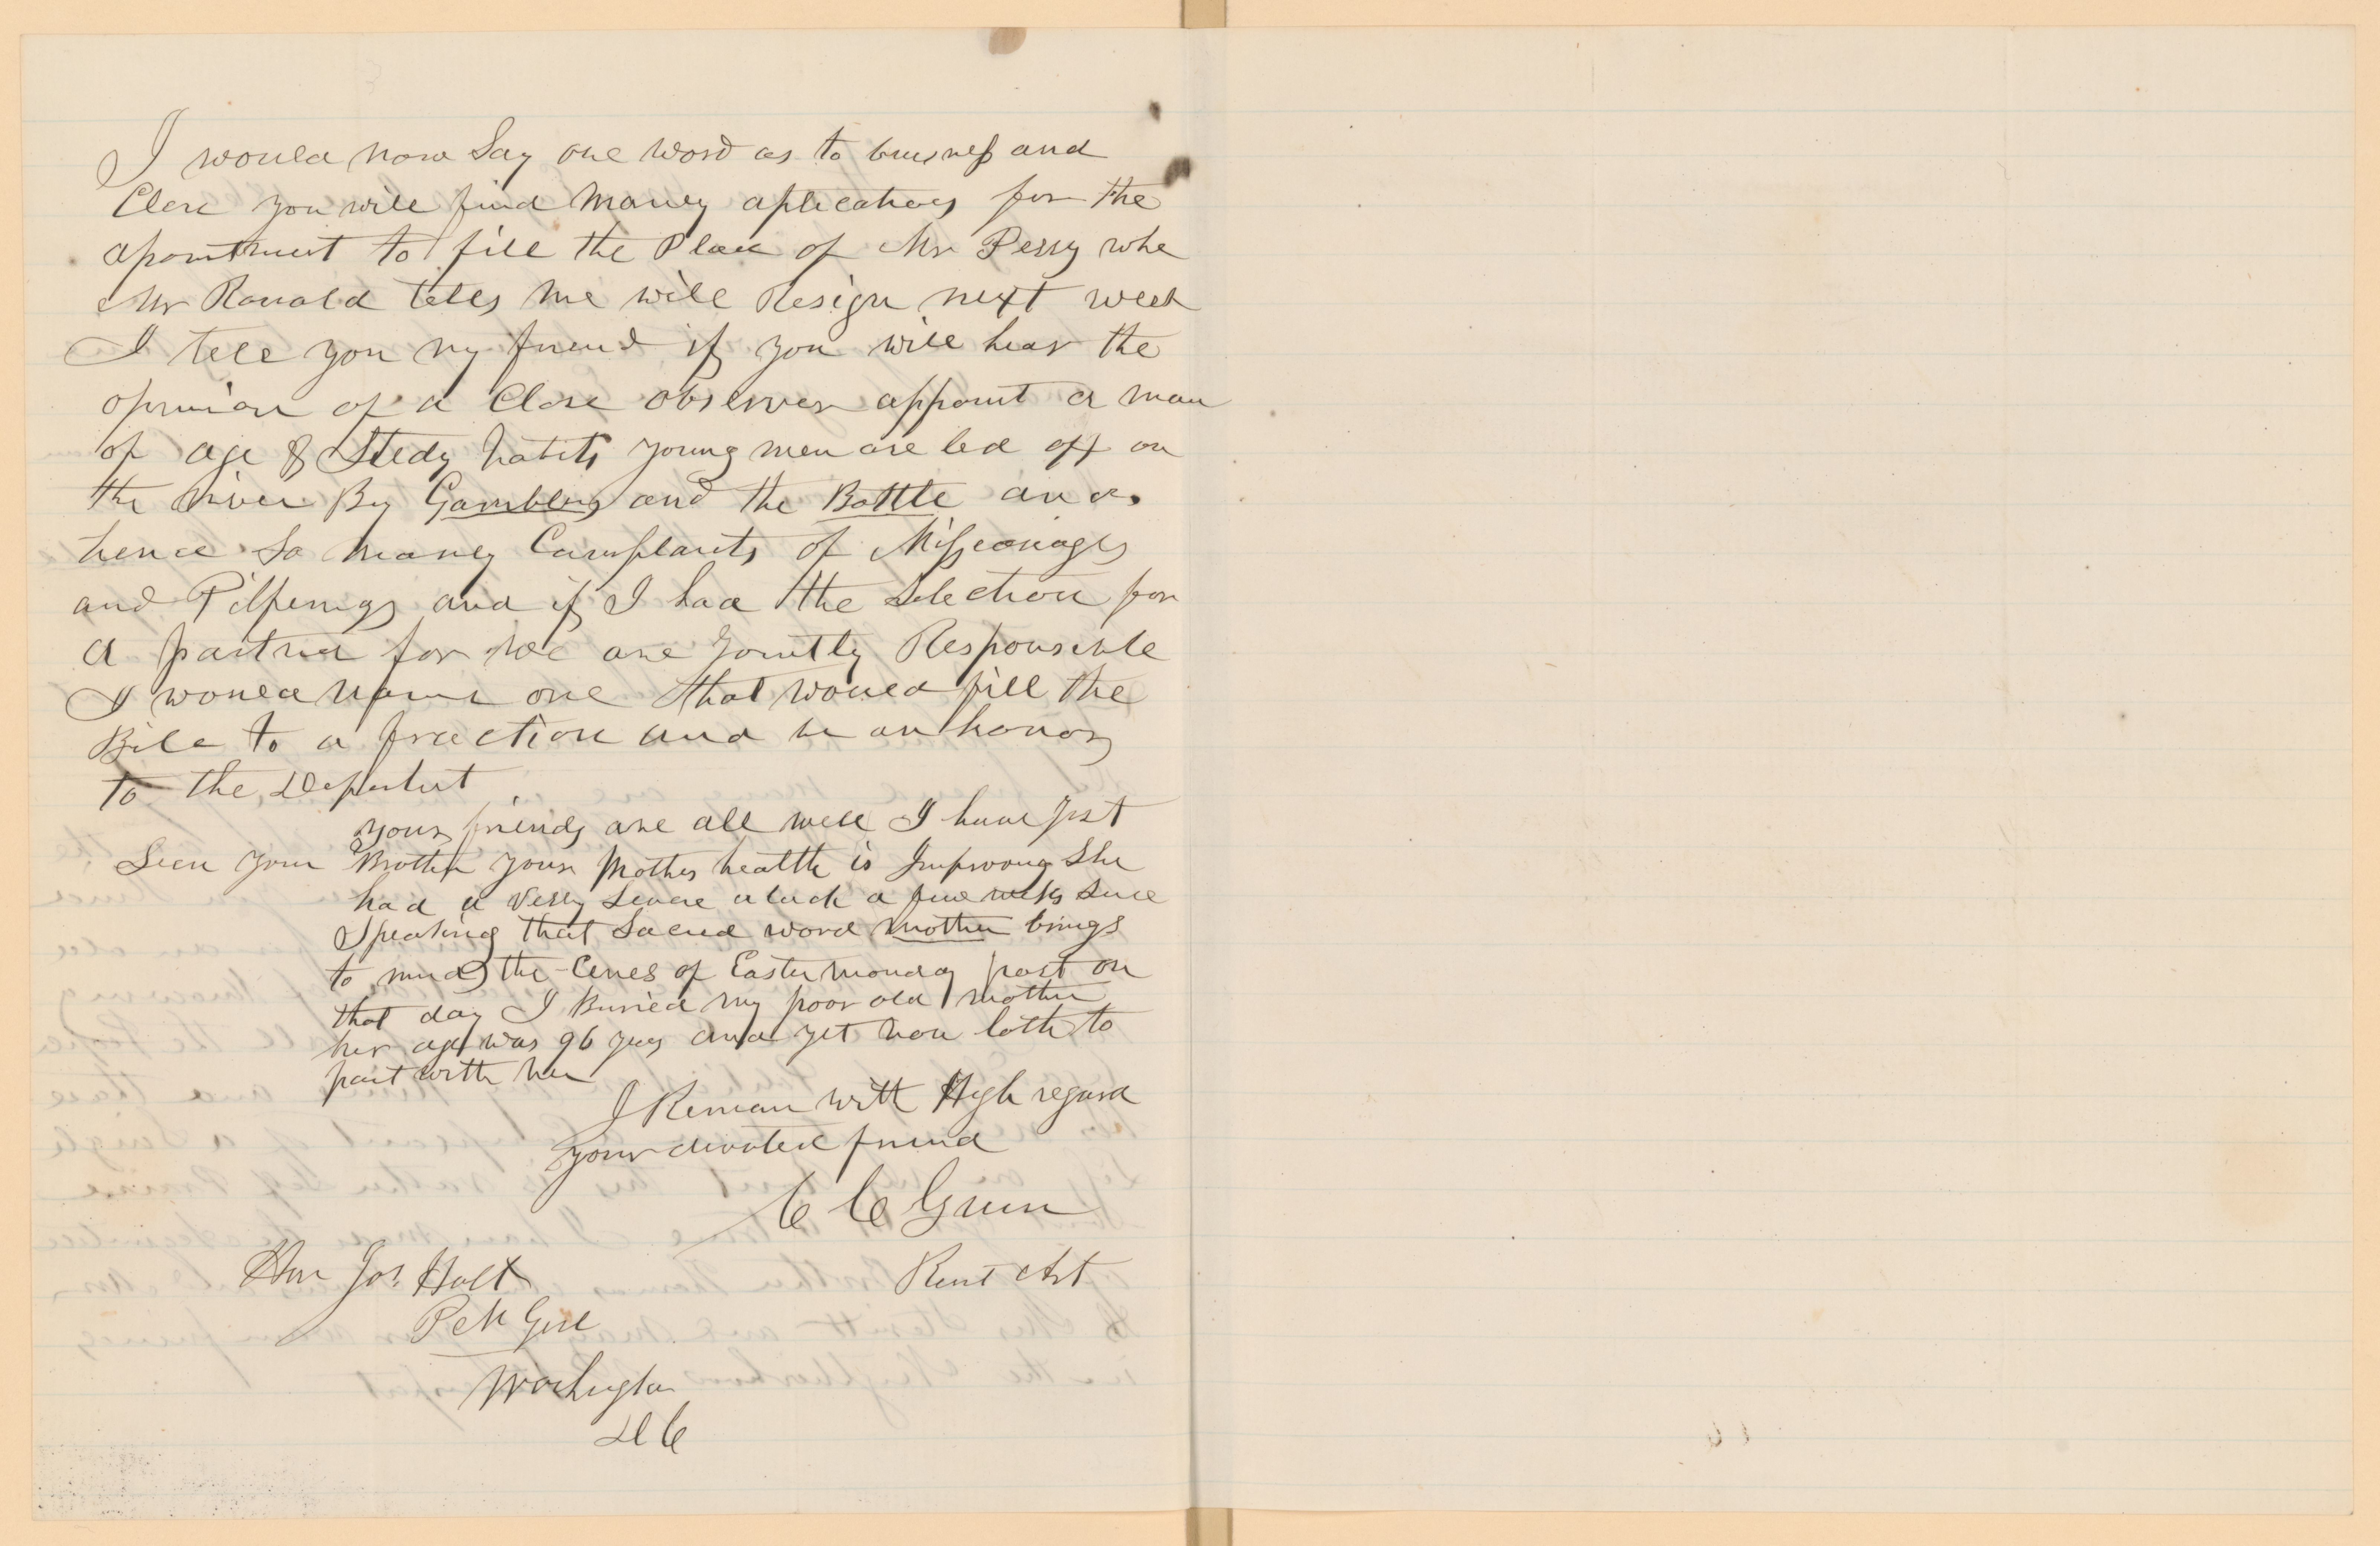 I would now Say one word as to buisness and
Close you will find Maney aplications for the
apointment to fill the Place of Mr Perry who
Mr Ronald tells me will Resign next week
I tell you my friend if you will hear the
opinion of a Close observer appoint a man
of age & Stedy habits young men are led off on
the river By Gamblers and the Bottle and
hence So maney Complaints of
and Pilferings and if I had the Selection for
a partner for we are Jointly Responsible
I would name one that would fill the
Bill to a fraction and be an honor
to the Department
your friends are all well I have Just
Seen your Brother your Mother health is Improving She
had a Verry Severe atack a few weeks Since
Speaking that Sacred word mother brings
to mind the Cenes of Easter monday past on
that day I Buried my poor old mother
her age was 96 years and yet how loth to
part with her
I Remain with High regard
your devoted friend
C C Green
Hon Jos. Holt
Rout Agt
P M Genl
Washington
D C